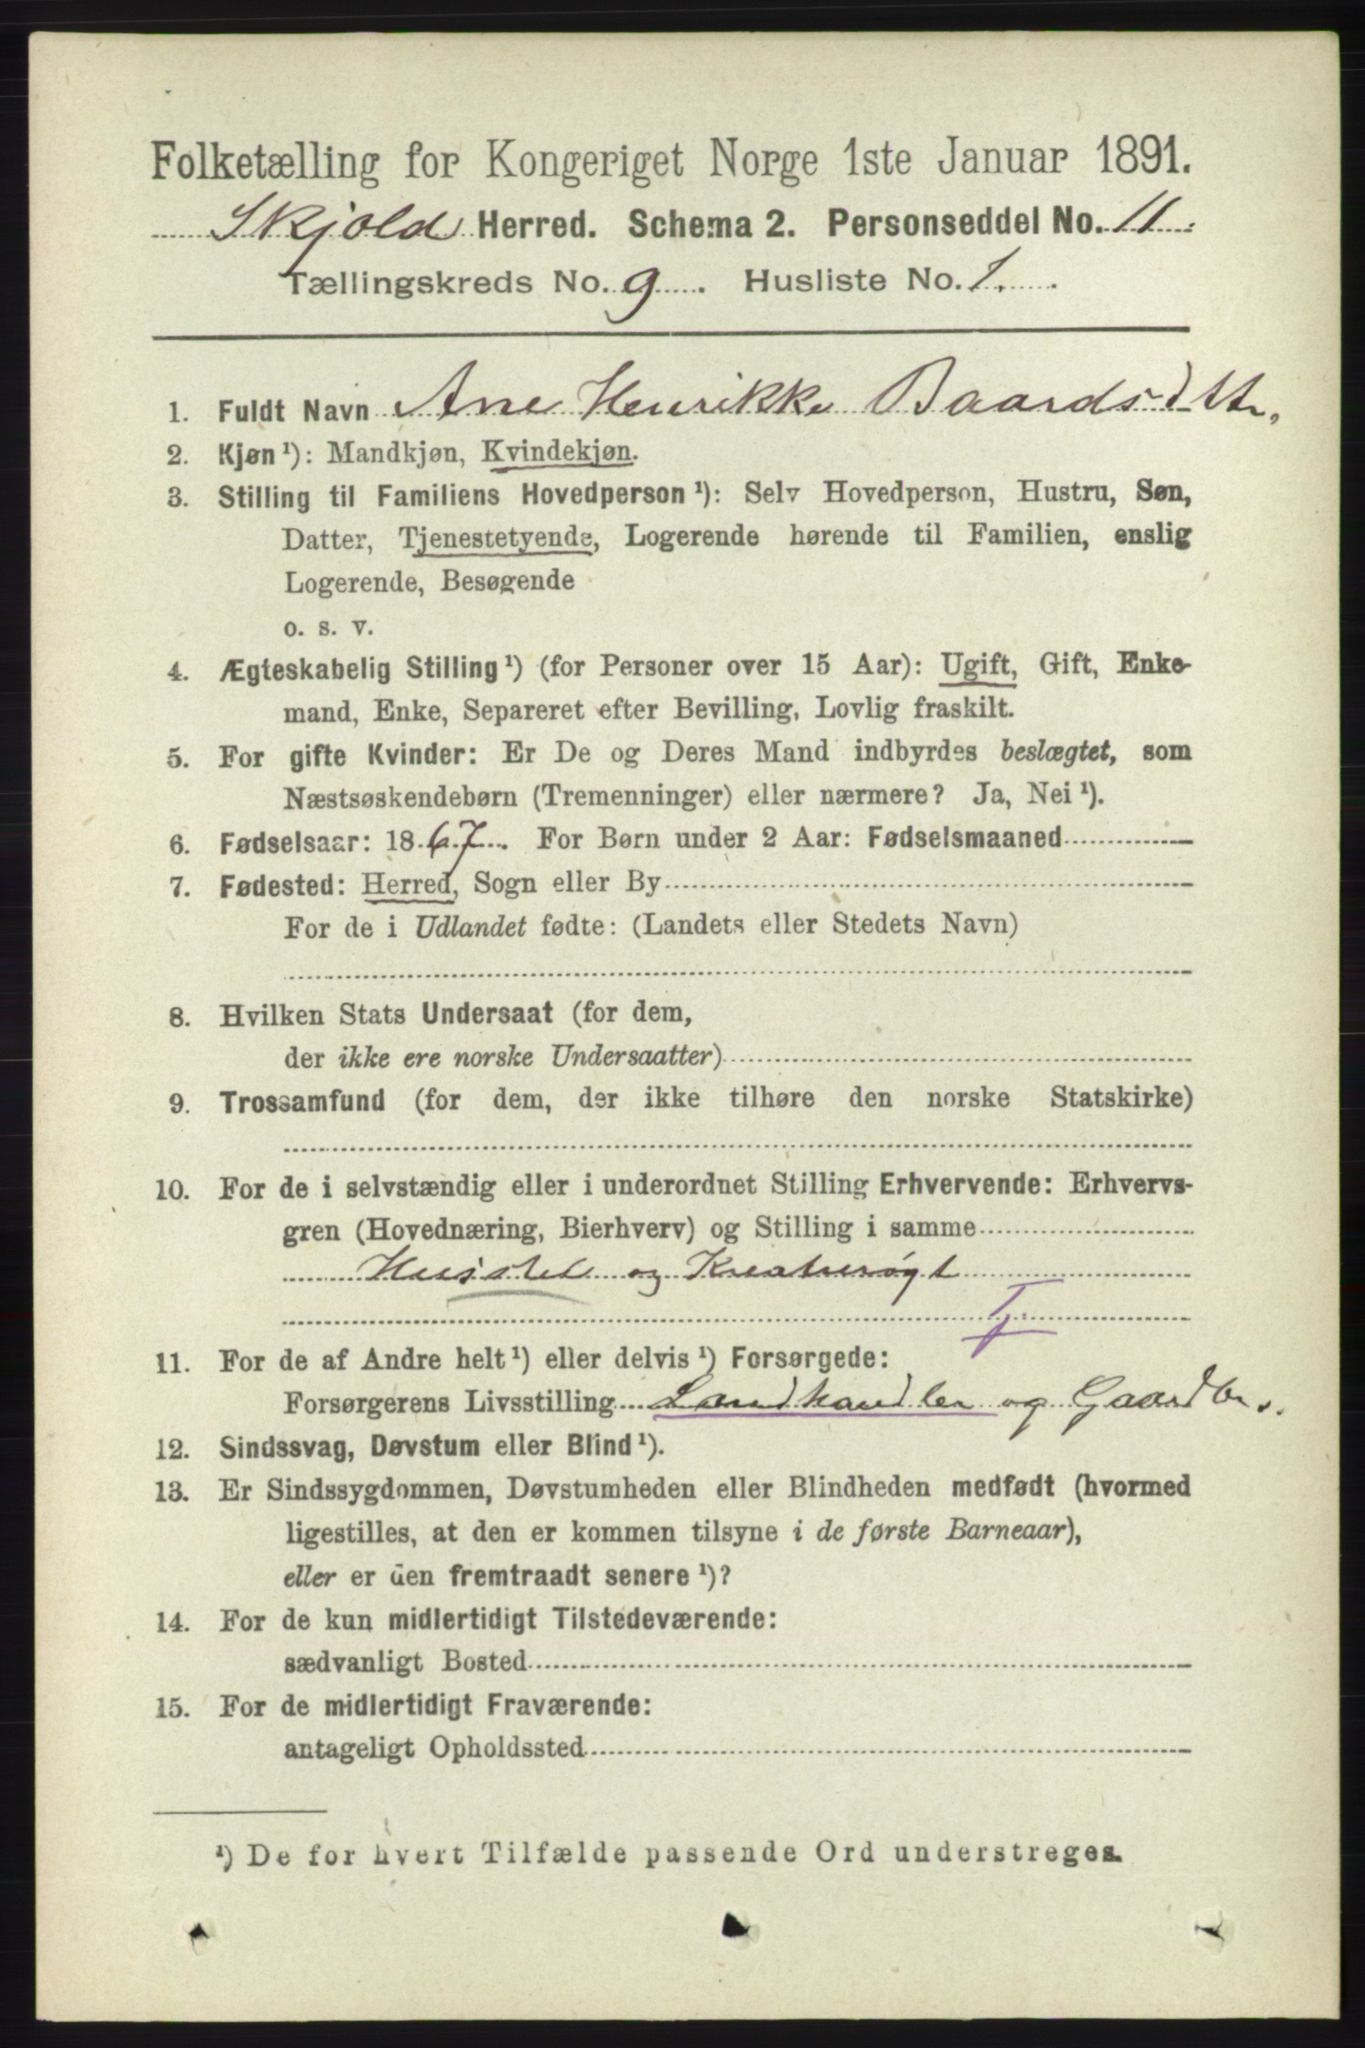 Folketælling for Kongeriget Norge 1ste Januar 1891.
Skjold Herred. Schema 2. Personseddel No. 11.
Tællingskreds No. 9. Husliste No. 1.
1. Fuldt Navn Ane Henrikke Baardsdttr.
2. Kjøn ¹): Mandkjøn, Kvindekjøn.
3. Stilling til Familiens Hovedperson ¹): Selv Hovedperson, Hustru, Søn,
Datter, Tjenestetyende, Logerende hørende til Familien, enslig
Logerende, Besøgende
o. s. v.
4. Ægteskabelig Stilling ¹) (for Personer over 15 Aar): Ugift, Gift, Enke-
mand, Enke, Separeret efter Bevilling, Lovlig fraskilt.
5. For gifte Kvinder: Er De og Deres Mand indbyrdes beslægtet, som
Næstsøskendebørn (Tremenninger) eller nærmere? Ja, Nei ¹).
6. Fødselsaar: 1867. For Børn under 2 Aar: Fødselsmaaned
7. Fødested: Herred, Sogn eller By
For de i Udlandet fødte: (Landets eller Stedets Navn)
8. Hvilken Stats Undersaat (for dem,
der ikke ere norske Undersaatter)
9. Trossamfund (for dem, der ikke tilhøre den norske Statskirke)
10. For de i selvstændig eller i underordnet Stilling Erhvervende: Erhvervs-
gren (Hovednæring, Bierhverv) og Stilling i samme
Husstel og Kreaturrøgt
Tj.
11. For de af Andre helt ¹) eller delvis ¹) Forsørgede:
Forsørgerens Livsstilling Landhandler og Gaardbr.
12. Sindssvag, Døvstum eller Blind ¹).
13. Er Sindssygdommen, Døvstumheden eller Blindheden medfødt (hvormed
ligestilles, at den er kommen tilsyne i de første Barneaar),
eller er den fremtraadt senere ¹)?
14. For de kun midlertidigt Tilstedeværende:
sædvanligt Bosted
15. For de midlertidigt Fraværende:
antageligt Opholdssted
¹) De for hvert Tilfælde passende Ord understreges.